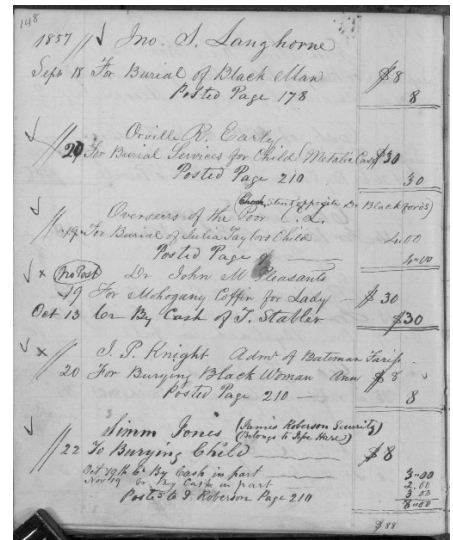 148
1857 // Jno. S. Langhorne
Sept 18 For Burial of Black Man $8
Posted Page 178 8
Orville R. Early
// 20 For Burial Services for Child (Metalic Case) $30
Posted Page 210 30
Street opposite Dr Blackfords)
Overseers of the Poor C. L.
// 19 For Burial of Julia Taylors Child 4.00
Posted Page 4.00
x No Post Dr John M Pleasants
19 For Mohogany Coffin for Lady $30
Oct 13 Cr By Cash of T. Stabler $30
x J. P. Knight Admr of Bateman
// 20 For Burying Black Woman Ann $8
Posted Page 210 8
Simm Jones (James Roberson Security)
(Belongs to Hare)
// 22 To Burying Child $8
Oct 17th Cr By Cash in part 3.00
Nov 19 Cr By Cash in part 2.00
3.00
Posted to J Roberson Page 210 8.00
$88